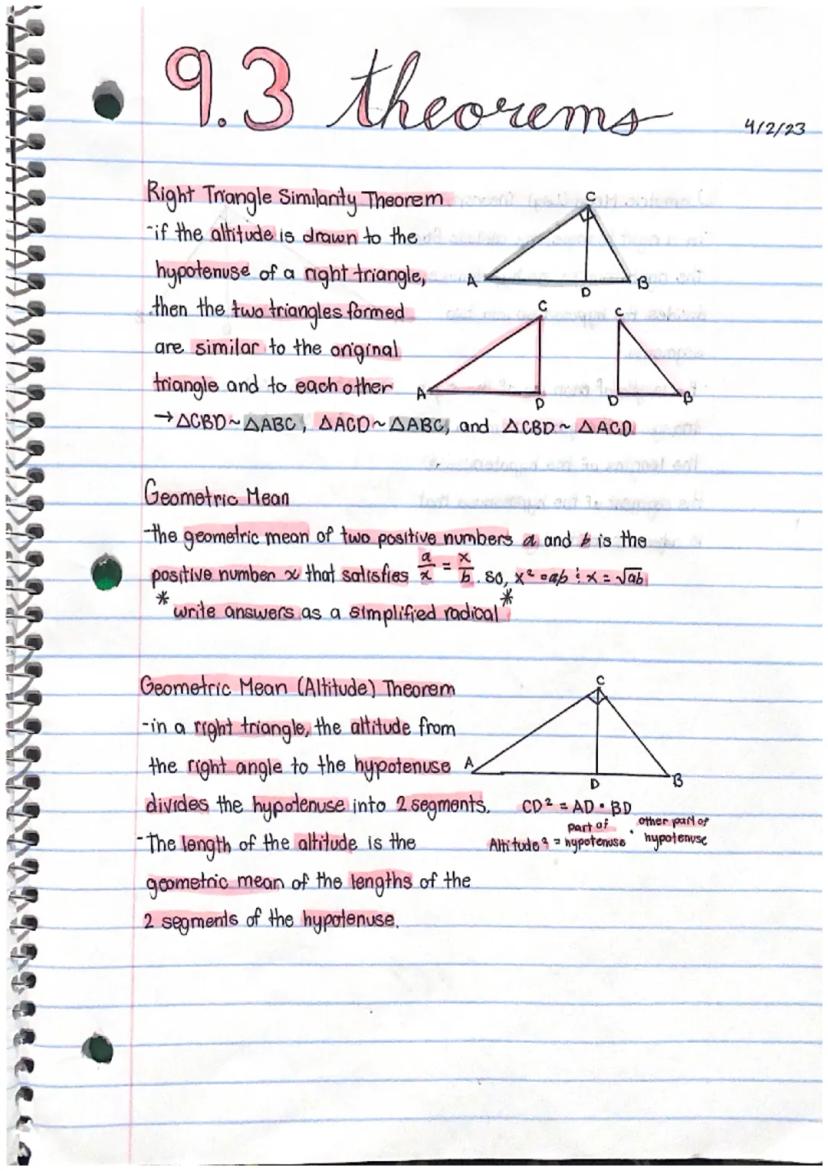 9.3 theorems
4/2/23
Right Triangle Similarity Theorem
-if the altitude is drawn to the
hypotenuse of a right triangle,
then the two triangles formed
are similar to the original
triangle and to each other
→ △CBD ~ △ABC, △ACD ~ △ABC, and △CBD ~ △ACD
C
A
D
B
C
A
D
C
D
B
Geometric Mean
-the geometric mean of two positive numbers a and b is the
positive number x that satisfies a/x = x/b. so, x² = ab ; x = √ab
*write answers as a simplified radical*
Geometric Mean (Altitude) Theorem
-in a right triangle, the altitude from
the right angle to the hypotenuse
divides the hypotenuse into 2 segments.
-The length of the altitude is the
geometric mean of the lengths of the
2 segments of the hypotenuse.
C
A
D
B
CD² = AD • BD
Altitude² = part of hypotenuse • other part of hypotenuse